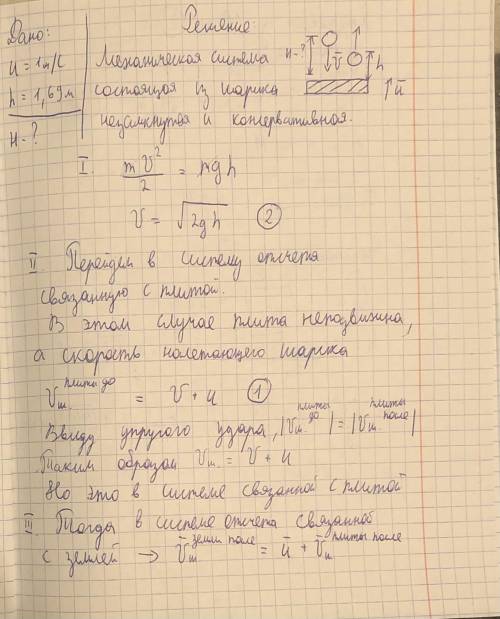 Дано:
Решение
u = 1м/с
h = 1,69м
H - ?
Механическая система
состоящая из шарика
незамкнутая и консервативная.
H-? v h
u
I. mv²/2 = mgh
v = √2gh (2)
II Перейдем в систему отсчета
связанную с плитой.
В этом случае плита неподвижна,
а скорость налетающего шарика
v ш. плиты до = v + u (1)
Ввиду упругого удара, |v ш плиты до| = |v ш плиты после|
Таким образом v ш. = v + u
Но это в системе связанной с плитой
III Тогда в системе отсчета связанной
с землей → v ш земли после = u + v ш плиты после